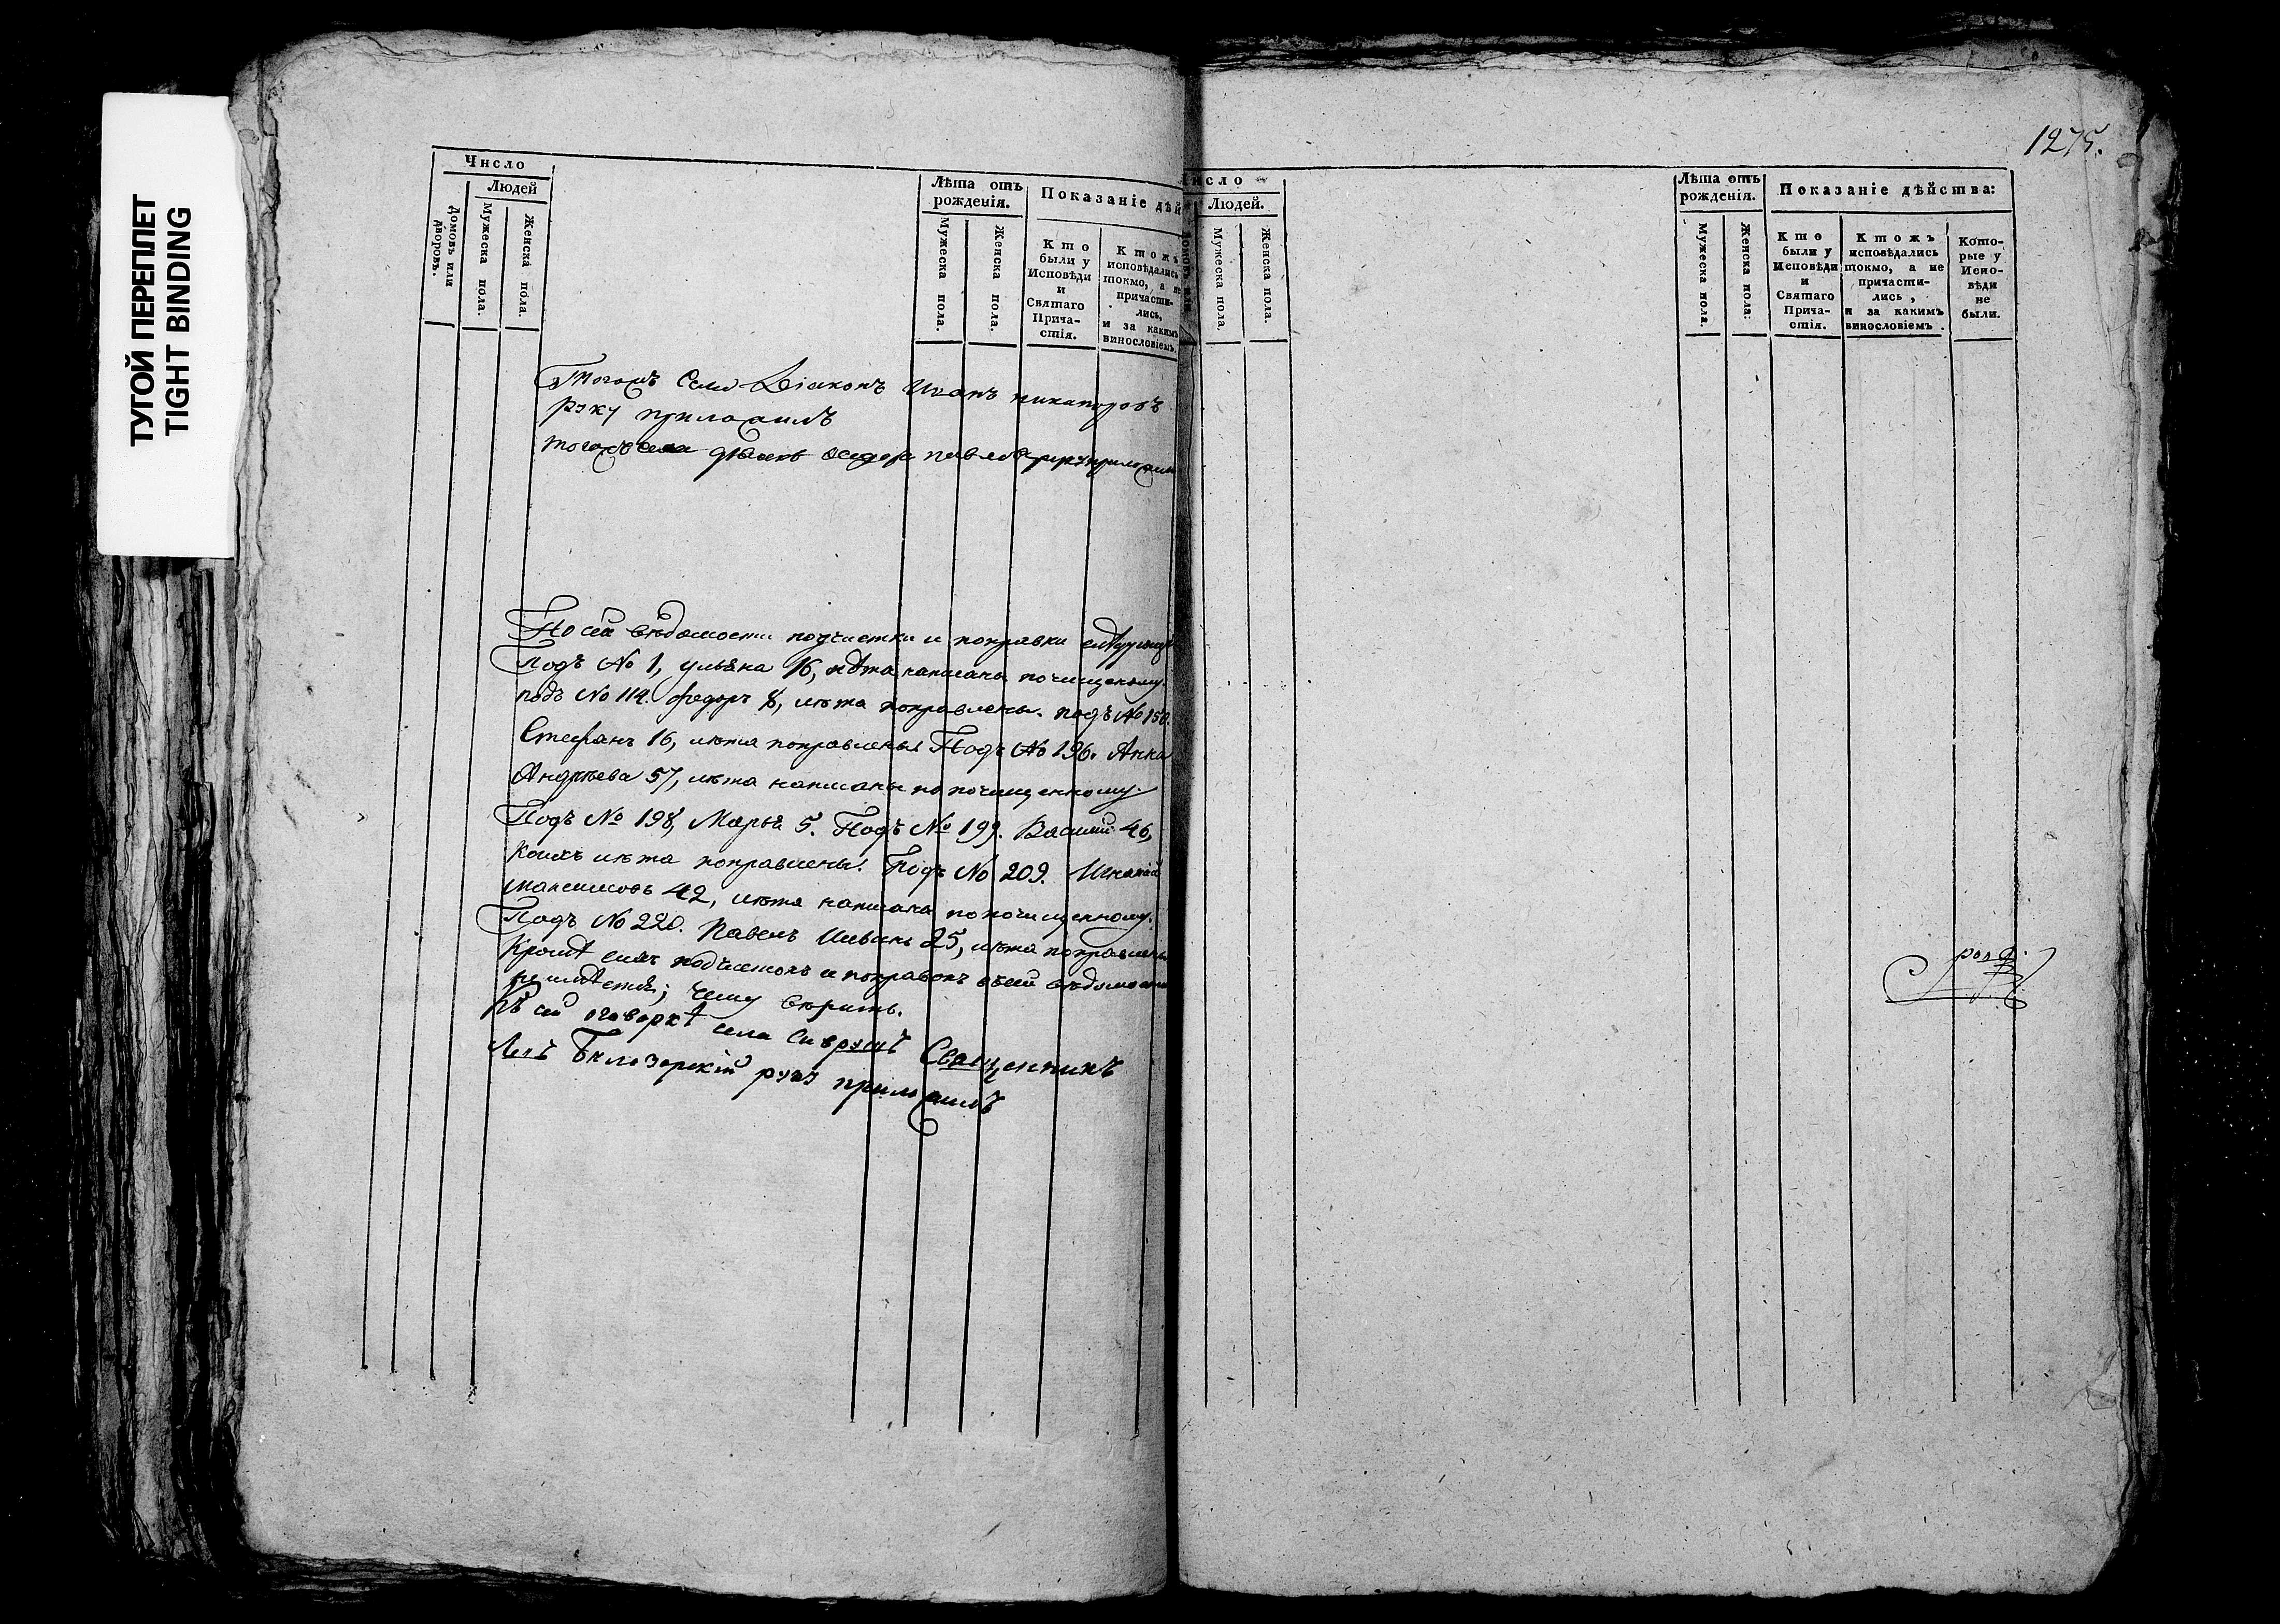 ТУГОЙ ПЕРЕПЛЕТ
TIGHT BINDING
Число
Людей
Домовъ или дворовъ.
Мужеска пола.
Женска пола.
Лѣта отъ рожденія.
Мужеска пола.
Женска пола.
Показаніе дѣй
Кто были у Исповѣди и Святаго Причастія.
Ктожъ исповѣдались токмо, а не причастились, и за какимъ винословіемъ.
Тогожъ Села Діаконъ Иванъ никаноровъ
руку приложилъ
тогожъ села дьячокъ
По сей вѣдомости подчистки и поправки слѣдующ
Подъ № 1, ульяна 16, лѣта написаны почищеному.
подъ № 114. Федоръ 8, лѣта поправлены. подъ № 150.
Стефанъ 16, лѣта поправлены Подъ № 196. Анна
Андреева 57, лѣта написаны по почищенному.
Подъ № 198, Марья 5. Подъ № 199. Василій 46,
коихъ лѣта поправлены. Подъ № 209. Игнатій
Максимовъ 42, лѣта написаны по почищенному.
Подъ № 220. Павелъ 25, лѣта поправлены
Кромѣ сихъ подчистокъ и поправокъ въ сей вѣдомости
не имѣется; чему вѣрить.
Къ сей оговоркѣ села Священникъ
Левъ Бѣлозерскій руку приложилъ
1275.
число
Людей.
Мужеска пола.
Женска пола.
Лѣта отъ рожденія.
Мужеска пола.
Женска пола.
Показаніе дѣйства:
Кто были у Исповѣди и Святаго Причастія.
Ктожъ исповѣдались токмо, а не причастились, и за какимъ винословіемъ.
Которые у Исповѣди не были.